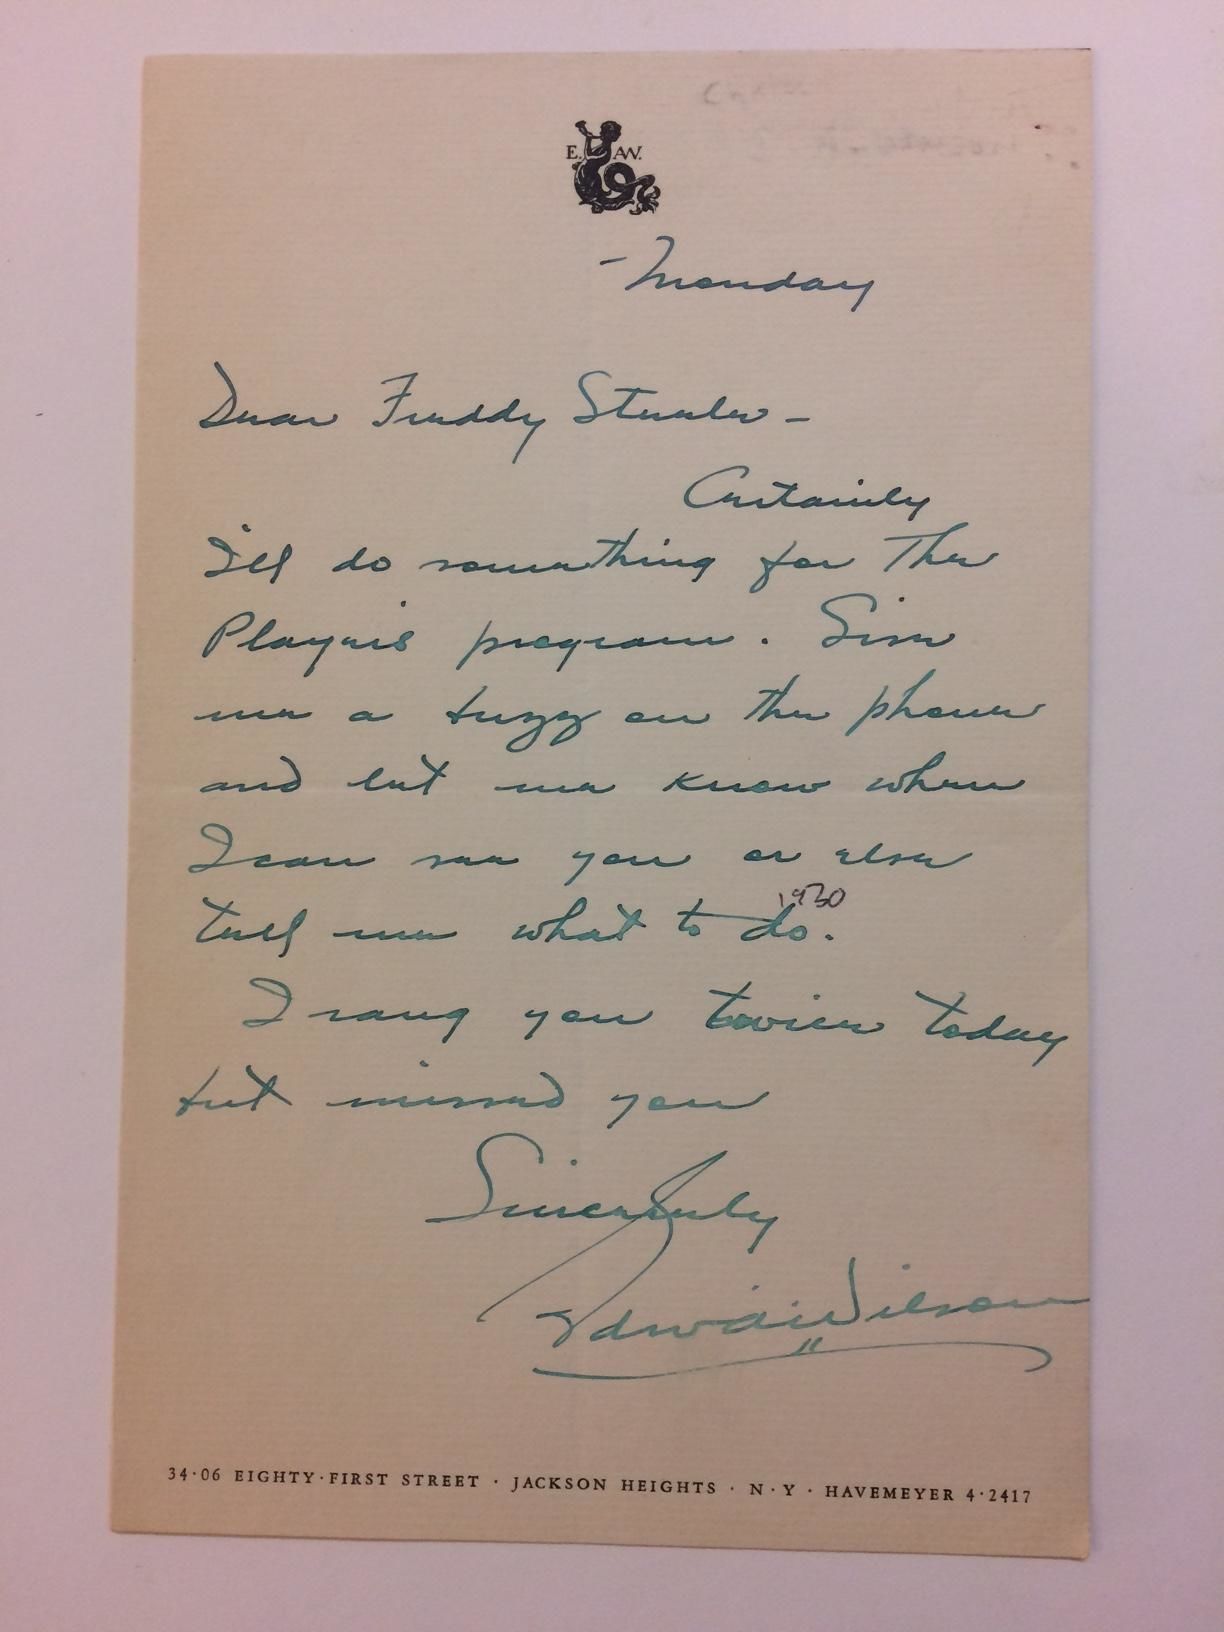 E. A.W.
- Monday
Dear Freddy Steele -
Certainly
I'll do something for the
Players program. Give
me a buzz on the phone
and let me know when
I can see you or else
1930
tell me what to do.
I rang you twice today
but missed you
Sincerely
Edw. A. Wilson
34·06 EIGHTY·FIRST STREET · JACKSON HEIGHTS · N·Y · HAVEMEYER 4·2417